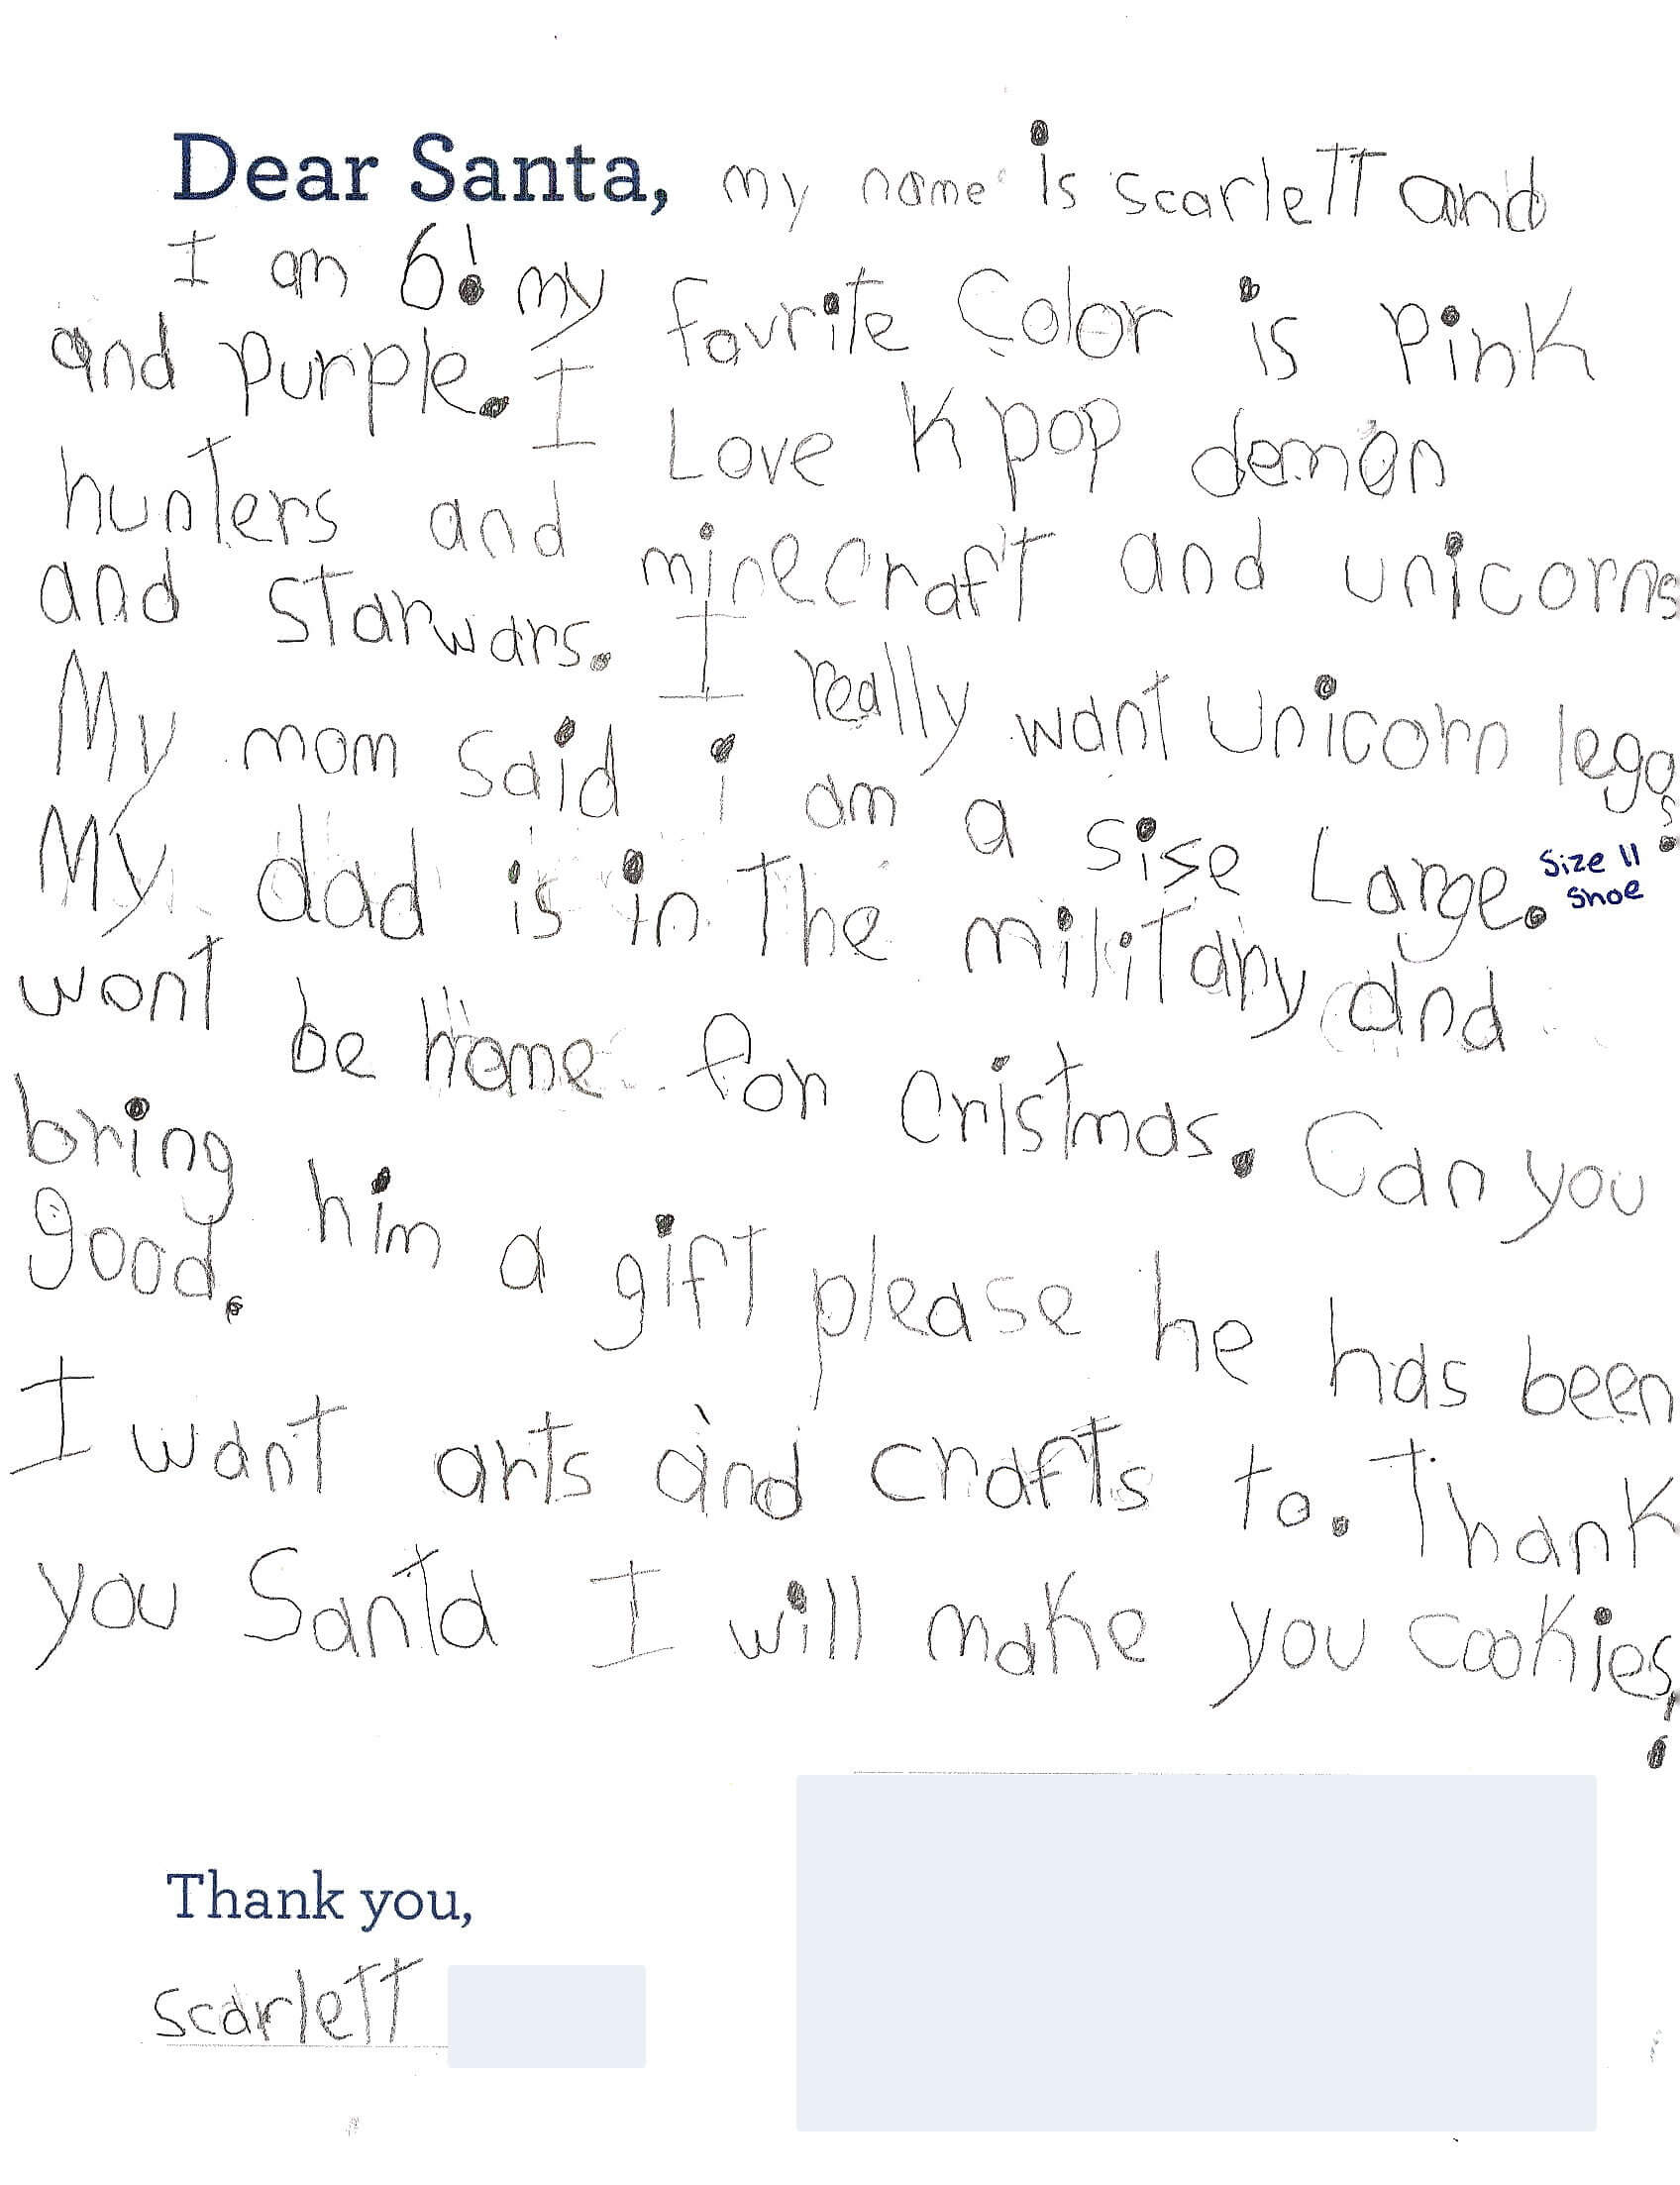 Dear Santa, my name is scarlett and
I am 6! my favrite Color is Pink
and purple. I Love K pop demon
hunters and minecraft and unicorns
and starwars. I really want Unicorn lego!
My mom said i am a sise Large. Size 11 shoe
My dad is in The military and
wont be home for cristmas. Can you
bring him a gift please he has been
good.
I want arts and crafts to. Thank
you Santa I will make you cookies!
Thank you,
scarlett